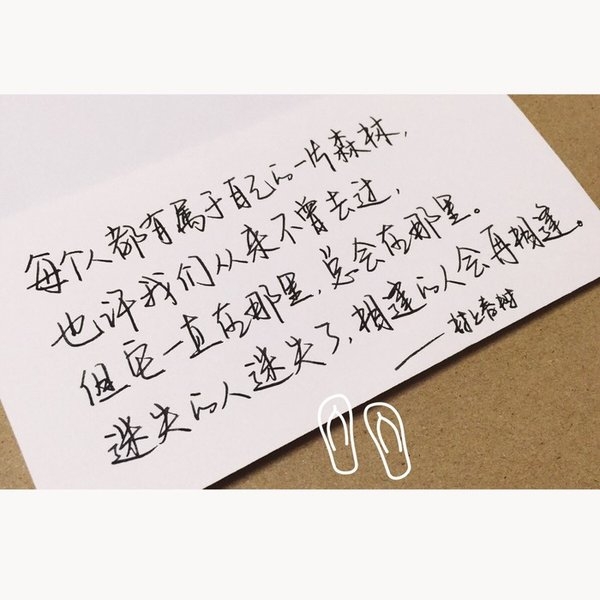 每个人都有属于自己的一片森林，
也许我们从来不曾去过，
但它一直在那里，总会在那里。
迷失的人迷失了，相逢的人会再相逢。
——村上春树